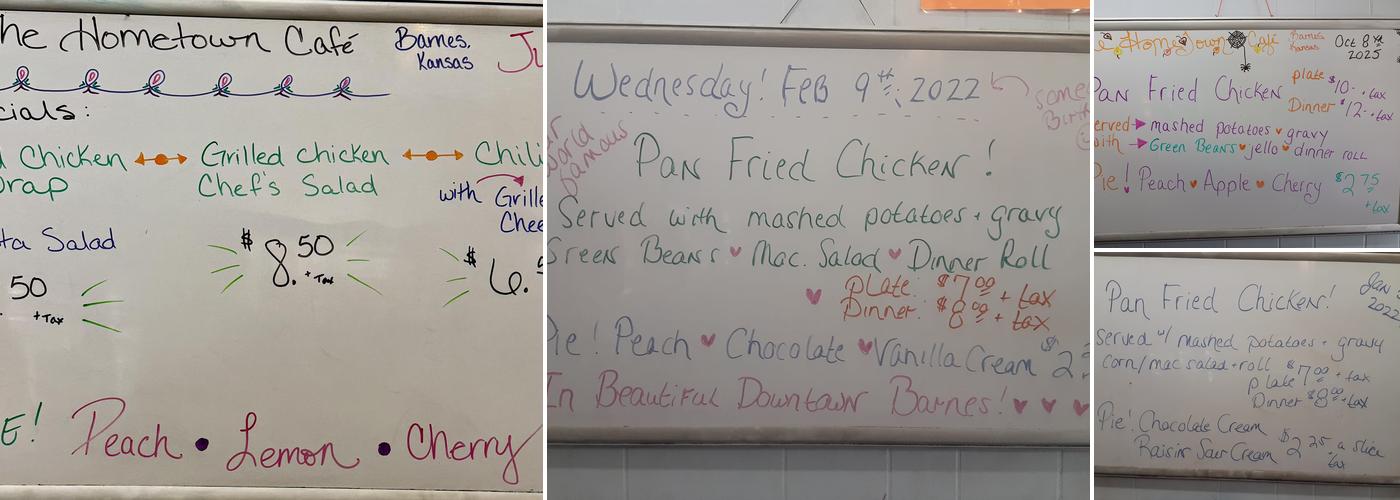 he Hometown Café
Barnes,
Kansas
Ju
cials:
Chicken Grilled Chicken Chili
Wrap Chef's Salad
with Grille
Chee
ta Salad
50
+ Tax
$8.50
+ Tax
$6.5
E! Peach • Lemon • Cherry
Wednesday! Feb 9th, 2022
some
Birth
World
famous
Pan Fried Chicken!
Served with mashed potatoes + gravy
Green Beans ♥ Mac. Salad ♥ Dinner Roll
♥ plate: $7.00 + tax
Dinner: $8.00 + tax
Pie! Peach ♥ Chocolate ♥ Vanilla Cream $2
In Beautiful Downtown Barnes! ♥ ♥ ♥
e Hometown Café
Barnes,
Kansas
Oct 8
2025
Pan Fried Chicken
plate $10. + tax
Dinner $12. + tax
erved → mashed potatoes ♥ gravy
with → Green Beans ♥ jello ♥ dinner roll
Pie! Peach ♥ Apple ♥ Cherry $2.75
+ tax
Pan Fried Chicken!
Jan
2022
Served w/ mashed potatoes + gravy
corn/mac salad + roll
plate $7.00 + tax
Dinner $8.00 + tax
Pie! Chocolate Cream
Raisin Sour Cream $2.25 a slice
tax